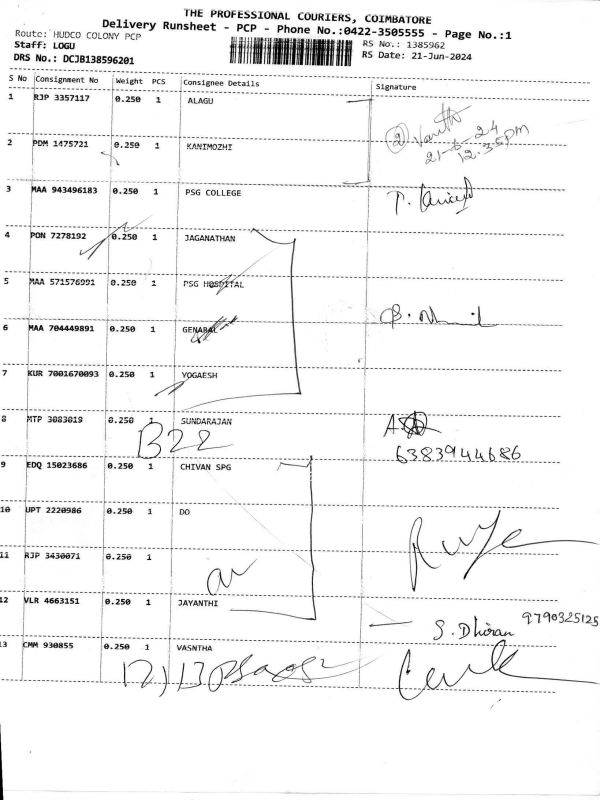 THE PROFESSIONAL COURIERS, COIMBATORE
Delivery Runsheet - PCP - Phone No.:0422-3505555 - Page No.:1
Route: HUDCO COLONY PCP
Staff: LOGU
DRS No.: DCJB138596201
RS No.: 1385962
RS Date: 21-Jun-2024
S No Consignment No Weight PCS Consignee Details Signature
1 RJP 3357117 0.250 1 ALAGU
21-6-24
12.35pm
2 PDM 1475721 0.250 1 KANIMOZHI
3 MAA 943496183 0.250 1 PSG COLLEGE
4 PON 7278192 0.250 1 JAGANATHAN
5 MAA 571576991 0.250 1 PSG HOSPITAL
6 MAA 704449891 0.250 1 GENARAL
7 KUR 7001670093 0.250 1 YOGAESH
8 MTP 3083019 0.250 1 SUNDARAJAN
B22
6383944686
9 EDQ 15023686 0.250 1 CHIVAN SPG
10 UPT 2220986 0.250 1 DO
11 RJP 3430071 0.250 1
12 VLR 4663151 0.250 1 JAYANTHI
S. Dhiran 9790325125
13 CMM 930855 0.250 1 VASNTHA